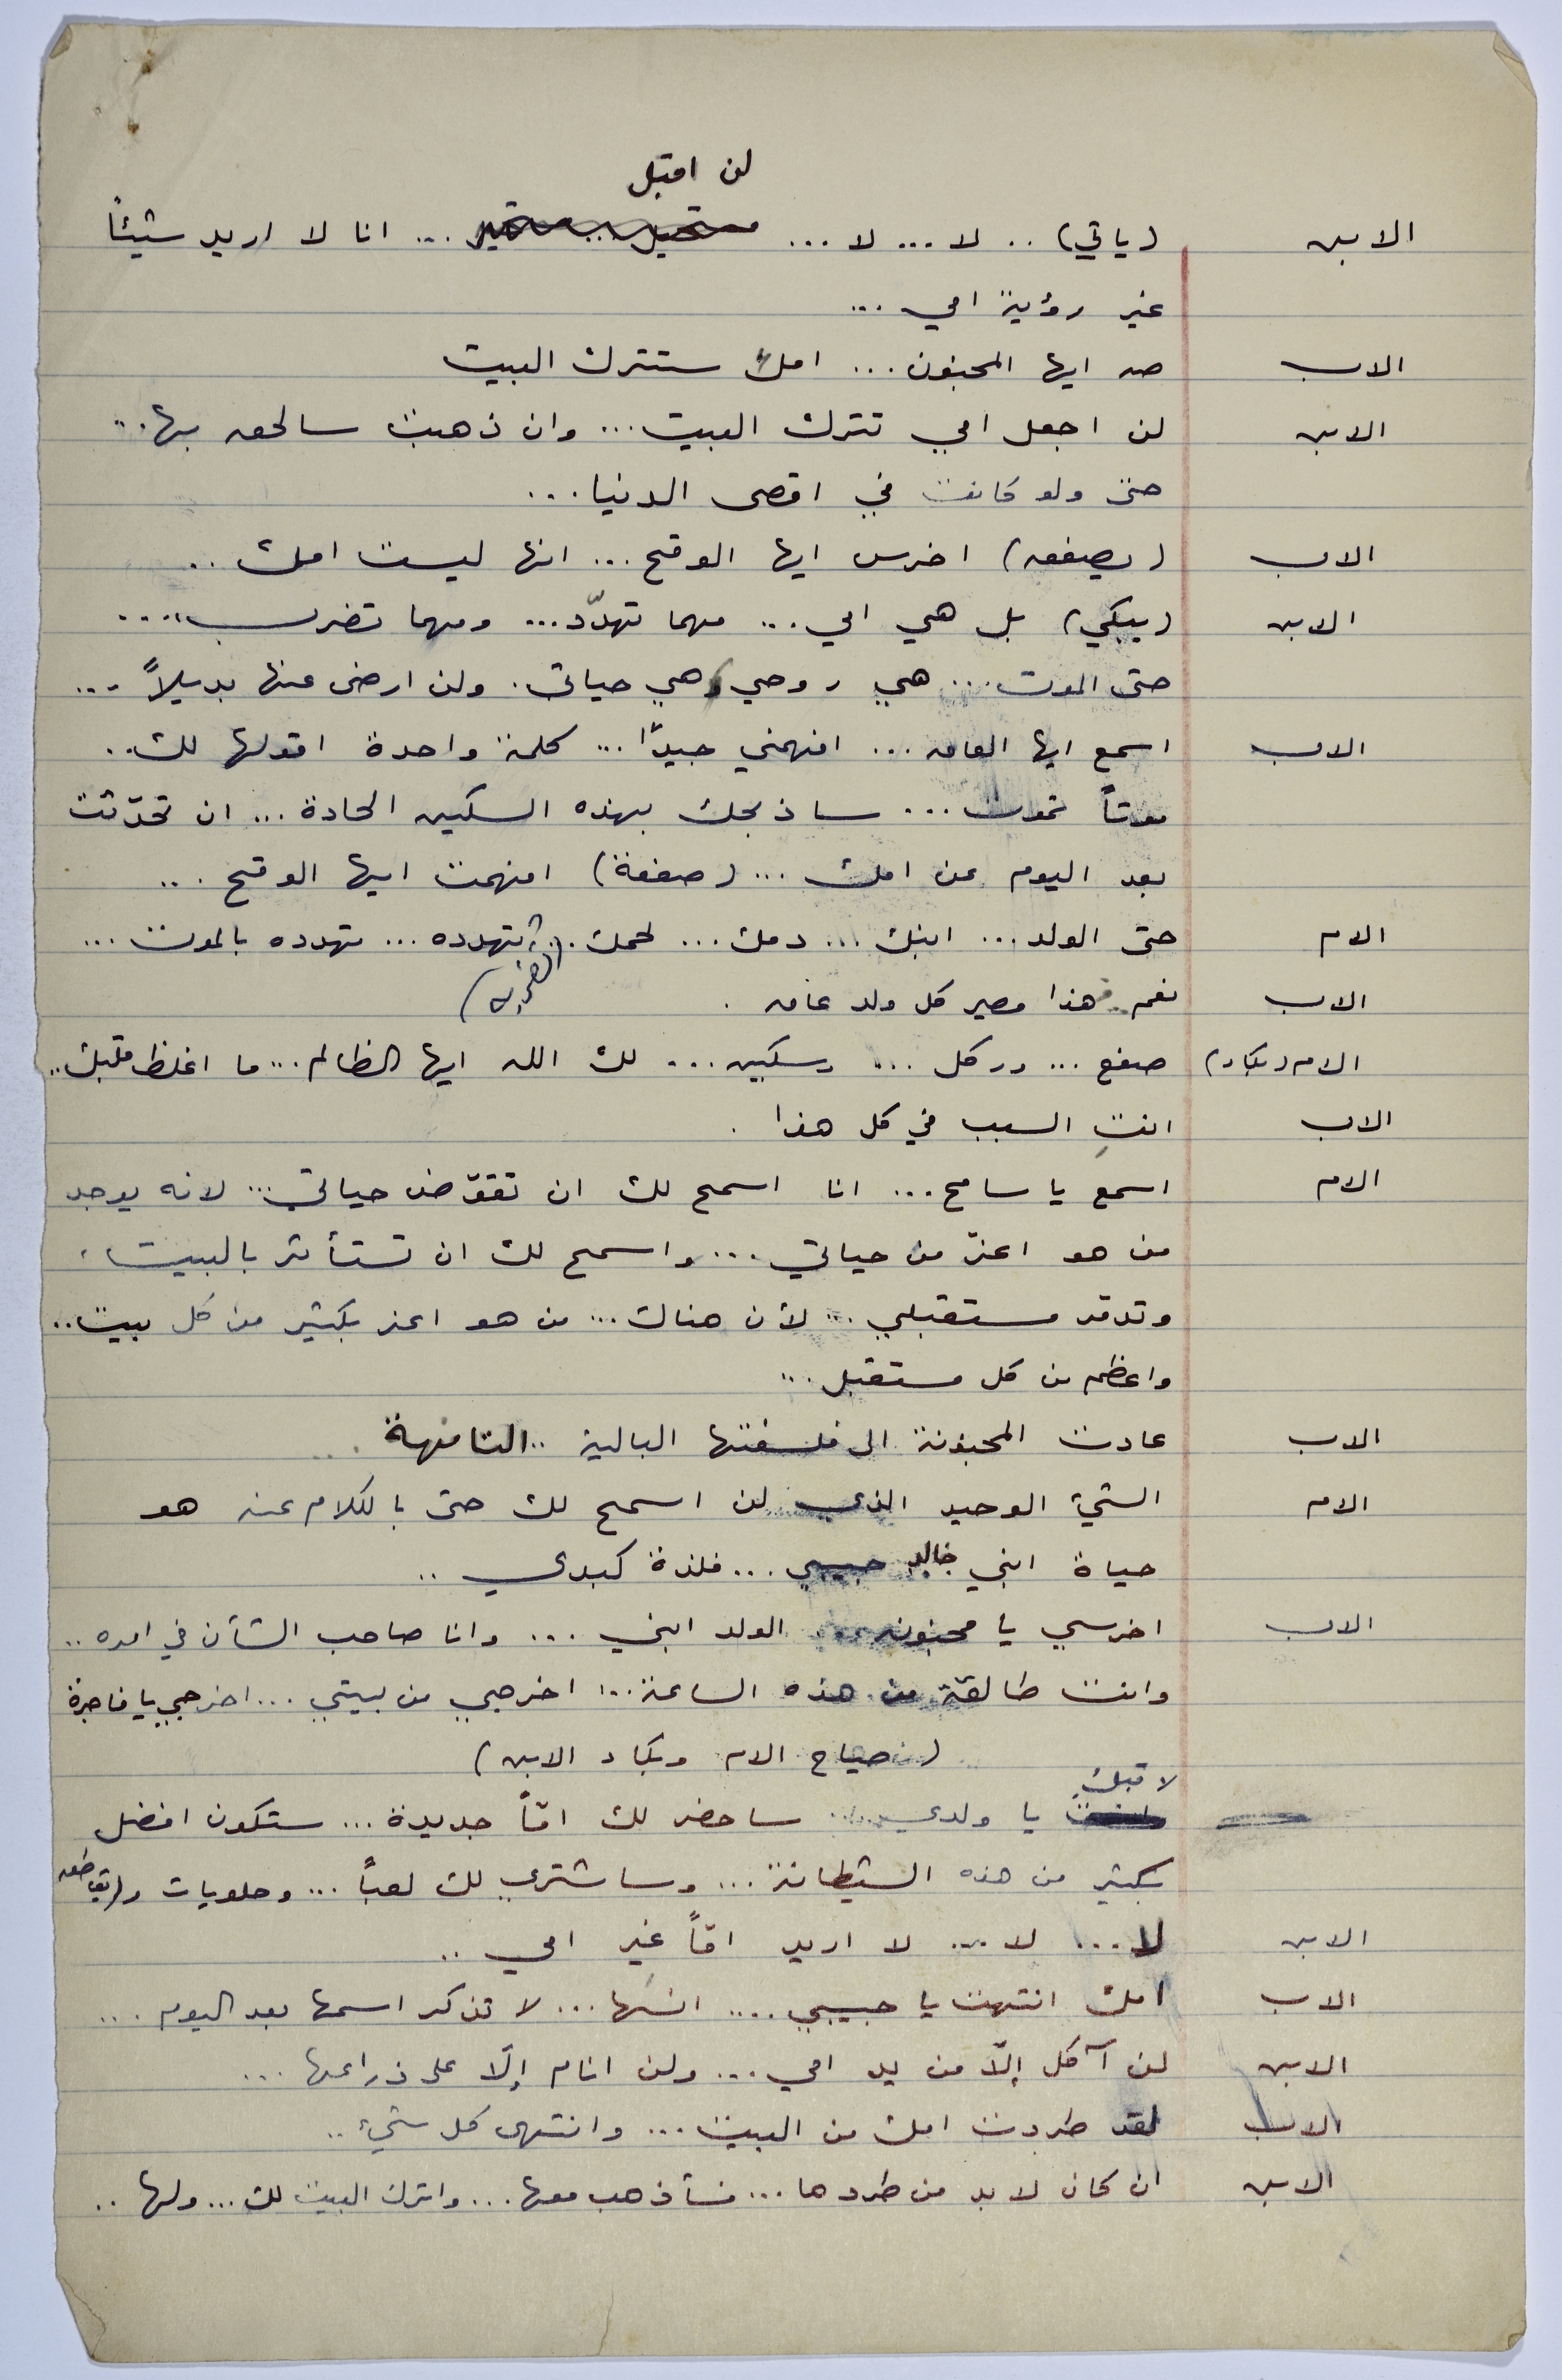 لن اقبل
الابن (ياتي) .. لا ... لا ... مستحيل .. مستحيل ... انا لا اريد شيئاً
غير رؤية امي ...
الاب صه ايها المجنون ... امك ستترك البيت
الابن لن اجعل امي تترك البيت ... وان ذهبت سالحق بها ..
حتى ولو كانت في اقصى الدنيا ...
الاب (يصفعه) اخرس ايها الوقح ... انها ليست امك ..
الابن (يبكي) بل هي امي ... مهما تهدّد ... ومهما تضرب ....
حتى الموت ... هي روحي وهي حياتي . ولن ارضى عنها بديلاً ...
الاب اسمع ايها العاق ... افهمني جيدّا ... كلمة واحدة اقولها لك ..
موتاً تموت ... ساذبحك بهذه السكين الحادة ... ان تحدّثت
بعد اليوم عن امك ... (صفعة) افهمت ايها الوقح ...
الام حتى الولد ... ابنك ... دمك ... لحمك .. أتهدده ... تهدده بالموت ...
(اتضربه)
الاب نعم هذا مصير كل ولد عاق .
الام (بكاء) صفع ... وركل ... وسكين ... لك الله ايها الظالم ... ما اغلظ قلبك ..
الاب انتِ السبب في كل هذا .
الام اسمع يا سامح ... انا اسمح لك ان تقوّض حياتي ... لانه يوجد
من هو اعزّ من حياتي ... واسمح لك ان تستأثر بالبيت ،
وتدمّر مستقبلي ... لأن هناك ... من هو اعز بكثير من كل بيت ..
واعظم من كل مستقبل ...
الاب عادت المجنونة الى فلسفتها البالية .. التافهة
الام الشيء الوحيد الذي لن اسمح لك حتى بالكلام عنه هو
حياة ابني خالد حبيبي ... فلذة كبدي ..
الاب اخرسي يا مجنونه الولد ابني ... وانا صاحب الشأن في امره ..
وانت طالقة من هذه الساعة ... اخرجي من بيتي ... اخرجي يا فاجرة
(صياح الام وبكاء الابن)
لا تبك
يا ولدي ... ساحضر لك امّاً جديدة ... ستكون افضل
بكثير من هذه الشيطانة ... وساشتري لك لعباً ... وحلويات و (يقاطعه
الابن لا ... لا ... لا اريد امّاً غير امي ..
الاب امك انتهت يا حبيبي .... انسَها ... لا تذكر اسمها بعد اليوم ...
الابن لن آكل إلّا من يد امي ... ولن انام إلّا على ذراعها ...
الاب لقد طردت امك من البيت ... وانتهى كل شيء ..
الابن ان كان لا بد من طردها ... فسأذهب معها ... واترك البيت لك ... ولها ..